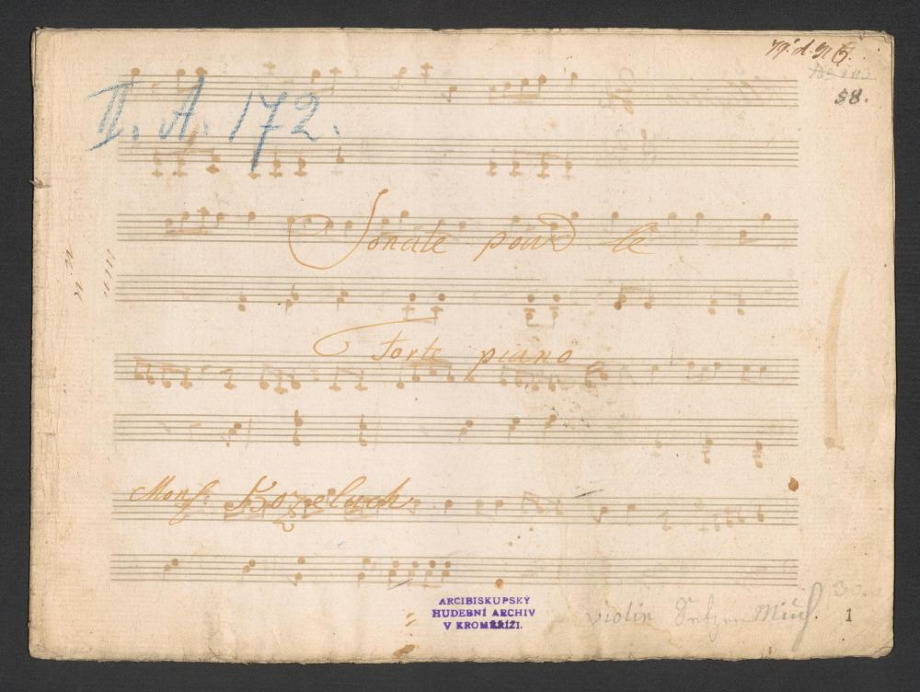 58.
II. A. 172.
Sonate pour le
Forte piano
Mons: Kozeluch.
ARCIBISKUPSKÝ
HUDEBNÍ ARCHIV
V KROMĚŘÍŽI.
violin
1